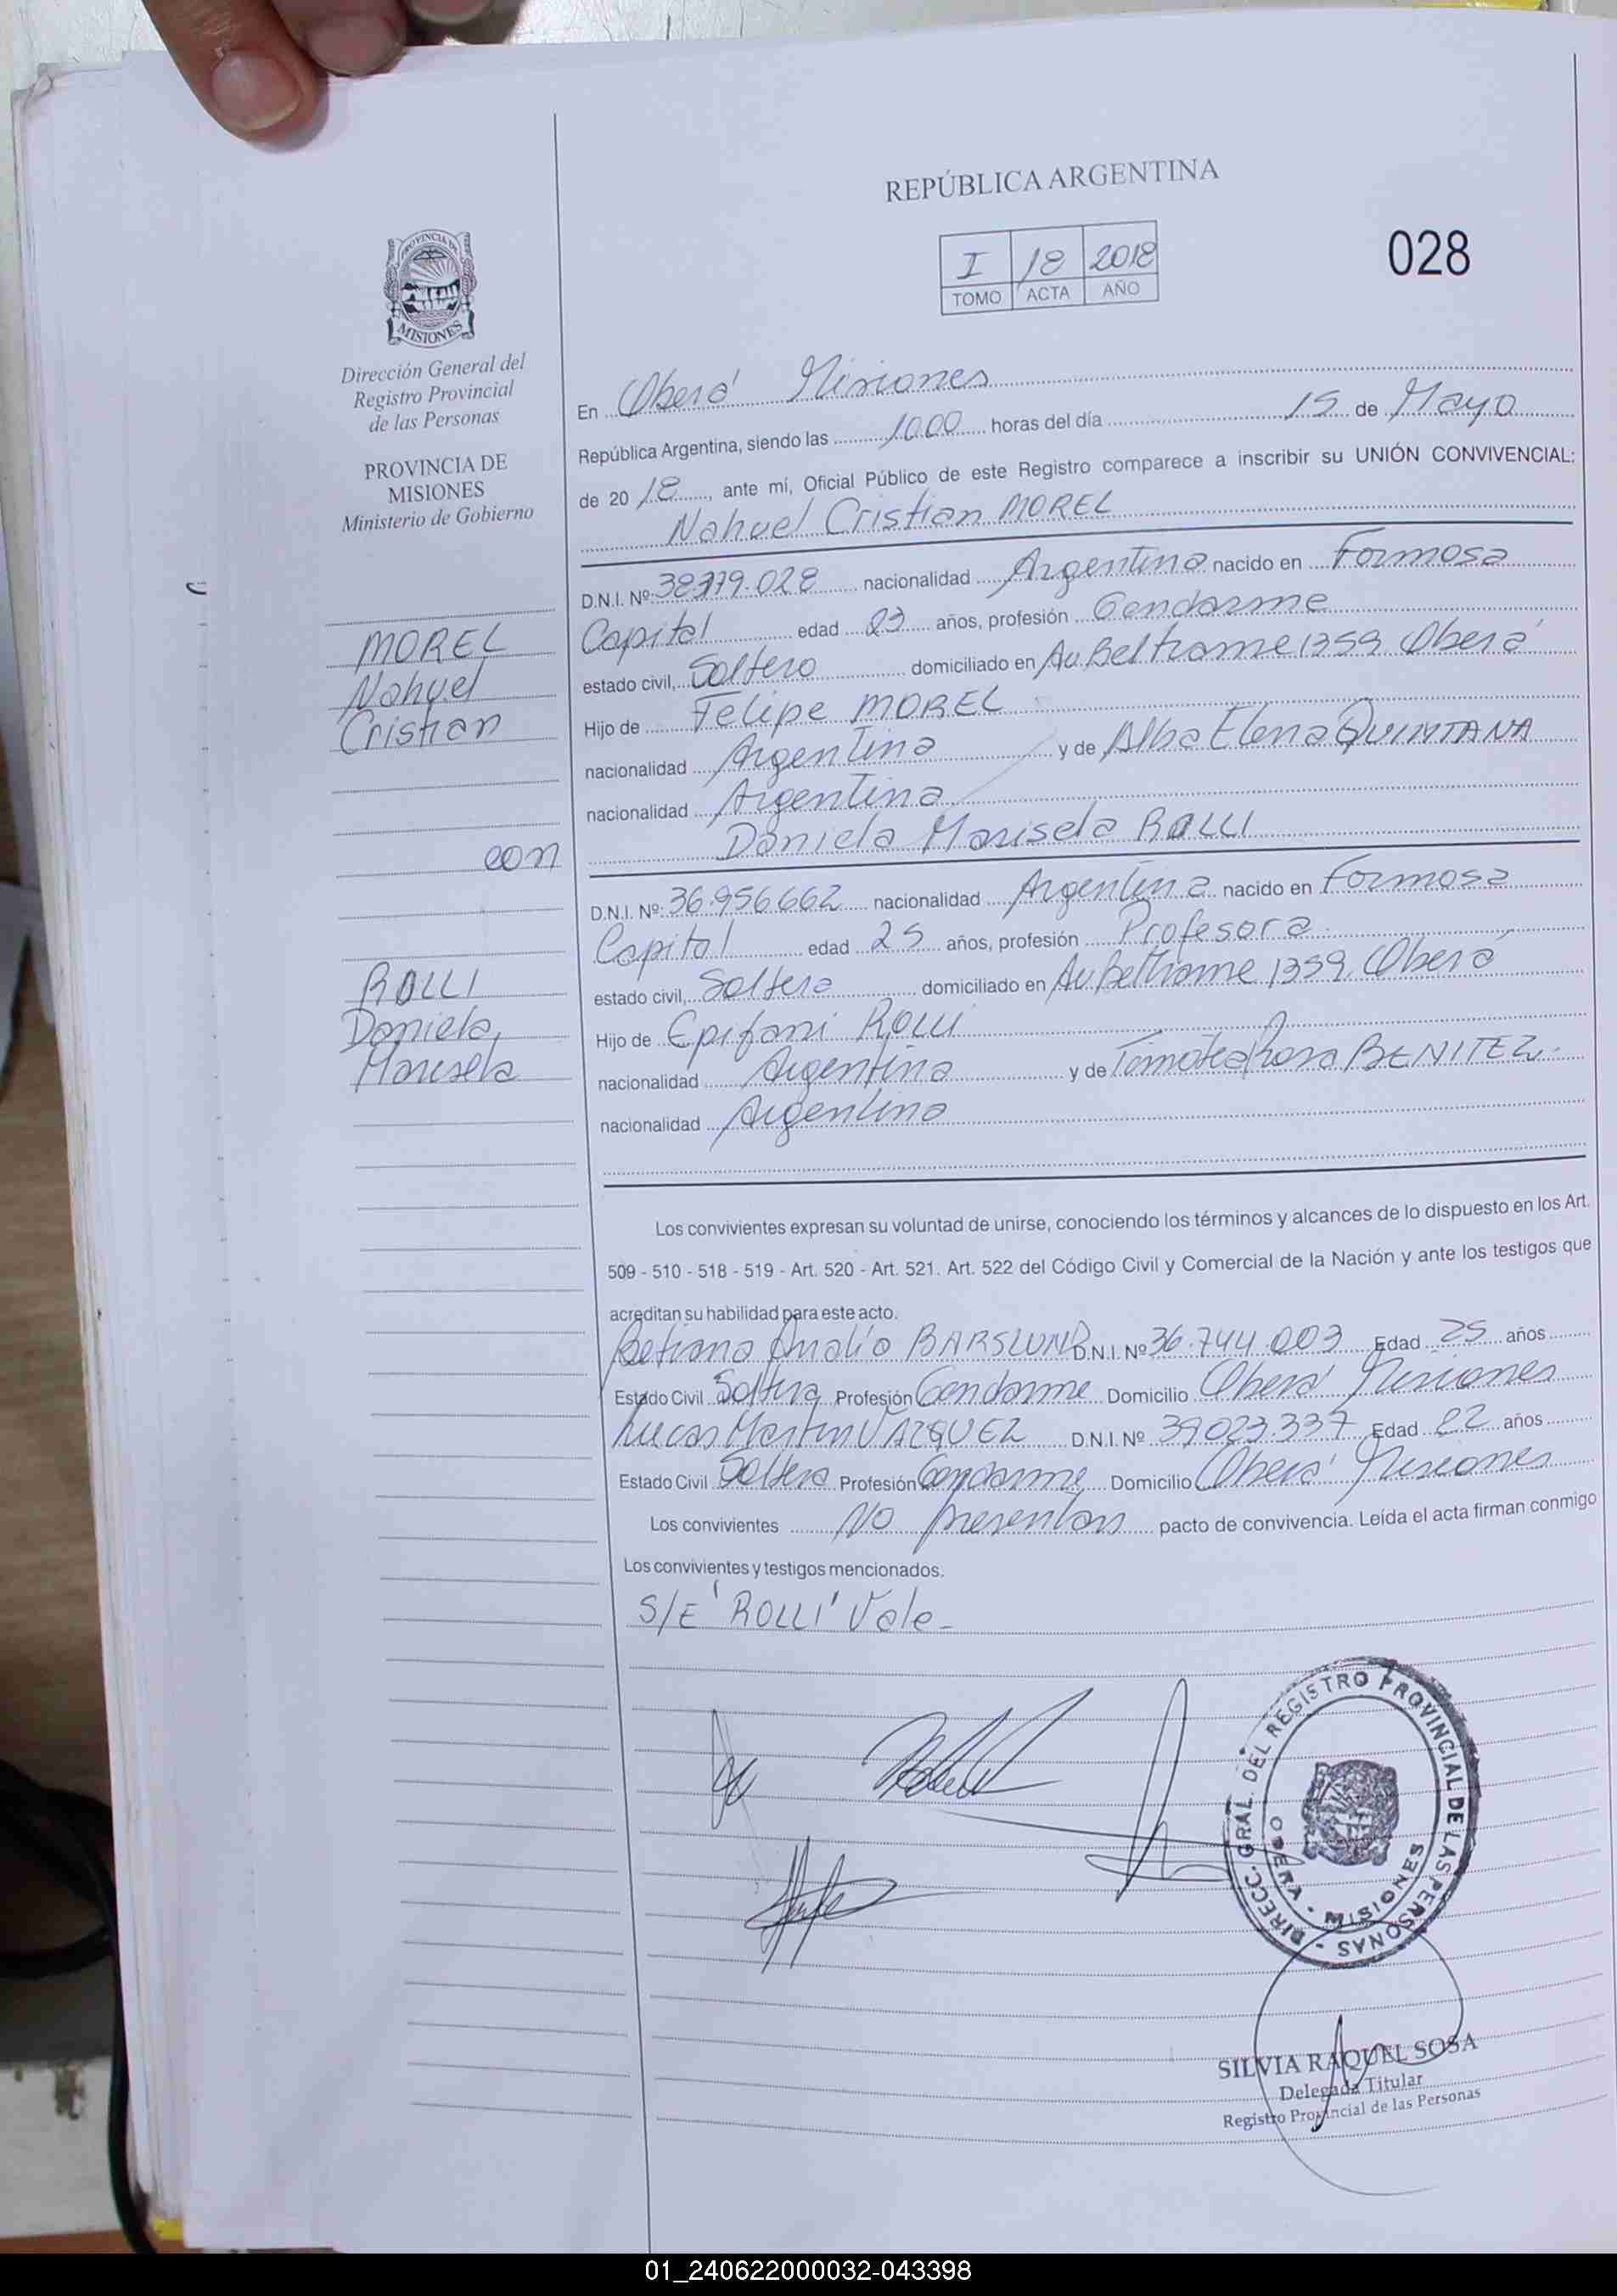 REPÚBLICA ARGENTINA
I 18 2018
TOMO ACTA AÑO
028
PROVINCIA DE
MISIONES
Dirección General del
Registro Provincial
de las Personas
PROVINCIA DE
MISIONES
Ministerio de Gobierno
MOREL
Nahuel
Cristian
con
ROLLI
Daniela
Marisela
En Oberá Misiones
República Argentina, siendo las 10.00 horas del día 15 de Mayo
de 2018, ante mí, Oficial Público de este Registro comparece a inscribir su UNIÓN CONVIVENCIAL:
Nahuel Cristian MOREL
D.N.I. Nº: 38.379.028 nacionalidad Argentina nacido en Formosa
Capital edad 23 años, profesión Gendarme
estado civil, Soltero domiciliado en Av Beltrame 1359 Oberá
Hijo de Felipe MOREL
nacionalidad Argentina y de Alba Elena QUINTANA
nacionalidad Argentina
Daniela Marisela ROLLI
D.N.I. Nº: 36.956.662 nacionalidad Argentina nacido en Formosa
Capital edad 25 años, profesión Profesora
estado civil, Soltera domiciliado en Av Beltrame 1359, Oberá
Hijo de Epifani ROLLI
nacionalidad Argentina y de Timotea Rosa BENITEZ.
nacionalidad Argentina
Los convivientes expresan su voluntad de unirse, conociendo los términos y alcances de lo dispuesto en los Art.
509 - 510 - 518 - 519 - Art. 520 - Art. 521. Art. 522 del Código Civil y Comercial de la Nación y ante los testigos que
acreditan su habilidad para este acto.
Betiana Analía BARSLUND D.N.I. Nº 36.744.003 Edad 25 años
Estado Civil Soltera Profesión Gendarme Domicilio Oberá Misiones
Lucas Martin VAZQUEZ D.N.I. Nº 39023.337 Edad 22 años
Estado Civil Soltero Profesión Gendarme Domicilio Oberá Misiones
Los convivientes No presentan pacto de convivencia. Leída el acta firman conmigo
Los convivientes y testigos mencionados.
S/E "ROLLI" Vale-
DIRECC. GRAL. DEL REGISTRO PROVINCIAL DE LAS PERSONAS -
OBERA - MISIONES
SILVIA RAQUEL SOSA
Delegada Titular
Registro Provincial de las Personas
01_240622000032-043398